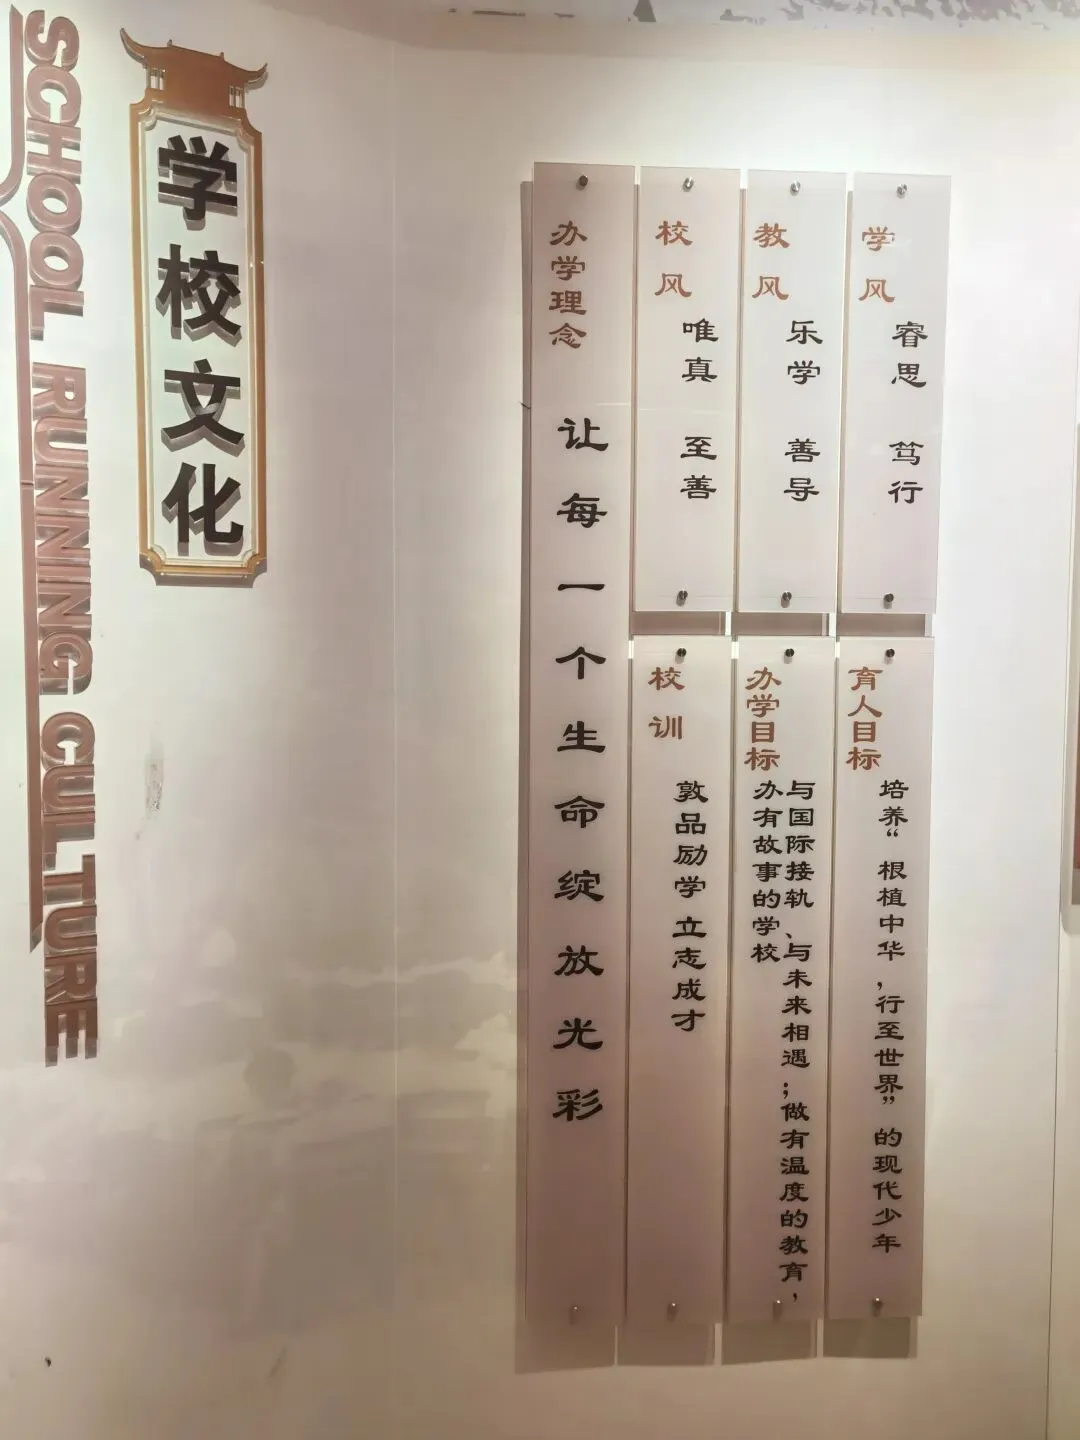 SCHOOL RUNNING CULTURE
学校文化
办学理念
让每一个生命绽放光彩
校风
唯真 至善
教风
乐学 善导
学风
睿思 笃行
校训
敦品励学 立志成才
办学目标
与国际接轨、与未来相遇；做有温度的教育，
办有故事的学校
育人目标
培养“根植中华，行至世界”的现代少年